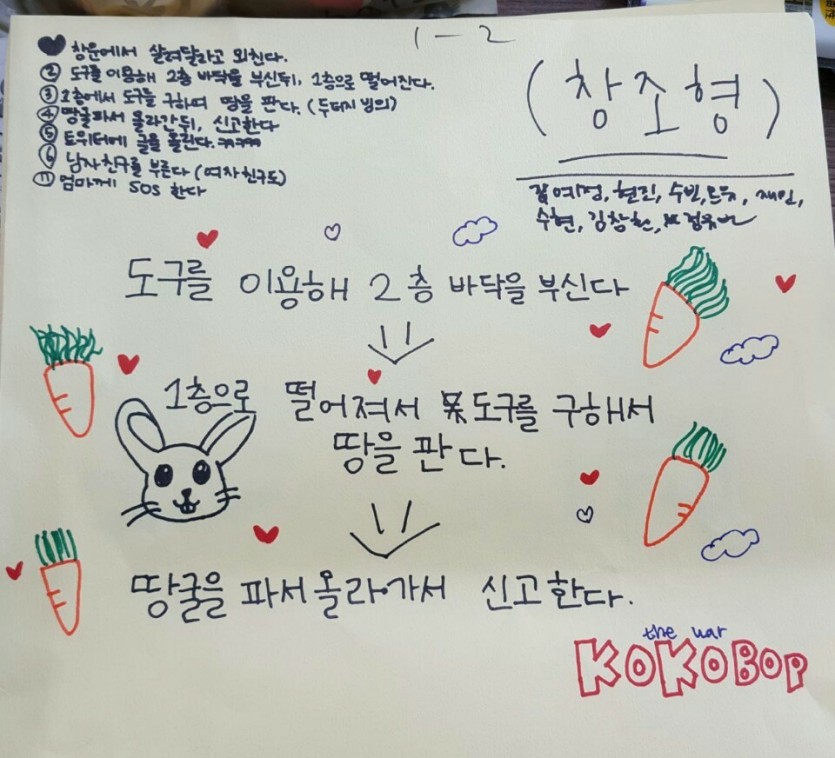 1-2
창문에서 살려달라고 외친다.
② 도구를 이용해 2층 바닥을 부신뒤, 1층으로 떨어진다.
③ 1층에서 도구를 구하여 땅을 판다. (두더지 빙의)
④ 땅굴파서 올라간뒤, 신고한다
⑤ 트위터에 글을 올린다. ㅋㅋㅋㅋ
⑥ 남자친구를 부른다 (여자친구도)
⑦ 엄마께 SOS 한다
(창조형)
예정, 현진, 수빈, 재민,
수현, 김창헌,
도구를 이용해 2층 바닥을 부신다
1층으로 떨어져서 도구를 구해서
땅을 판다.
땅굴을 파서 올라가서 신고한다.
the war
KOKOBOP